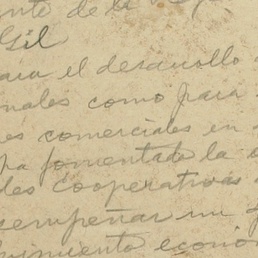 nte de la
Gil
para el desarrollo
nales como para
es comerciales en
ha fomentado la
des cooperativas
sempeñar un
vimiento econó